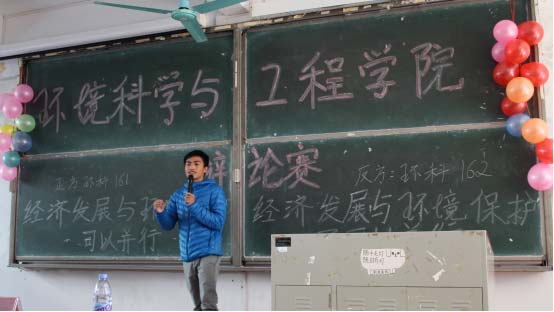 环境科学与工程学院
辩论赛
正方:环科161
反方:环科162
经济发展与环
可以并行
经济发展与环境保护